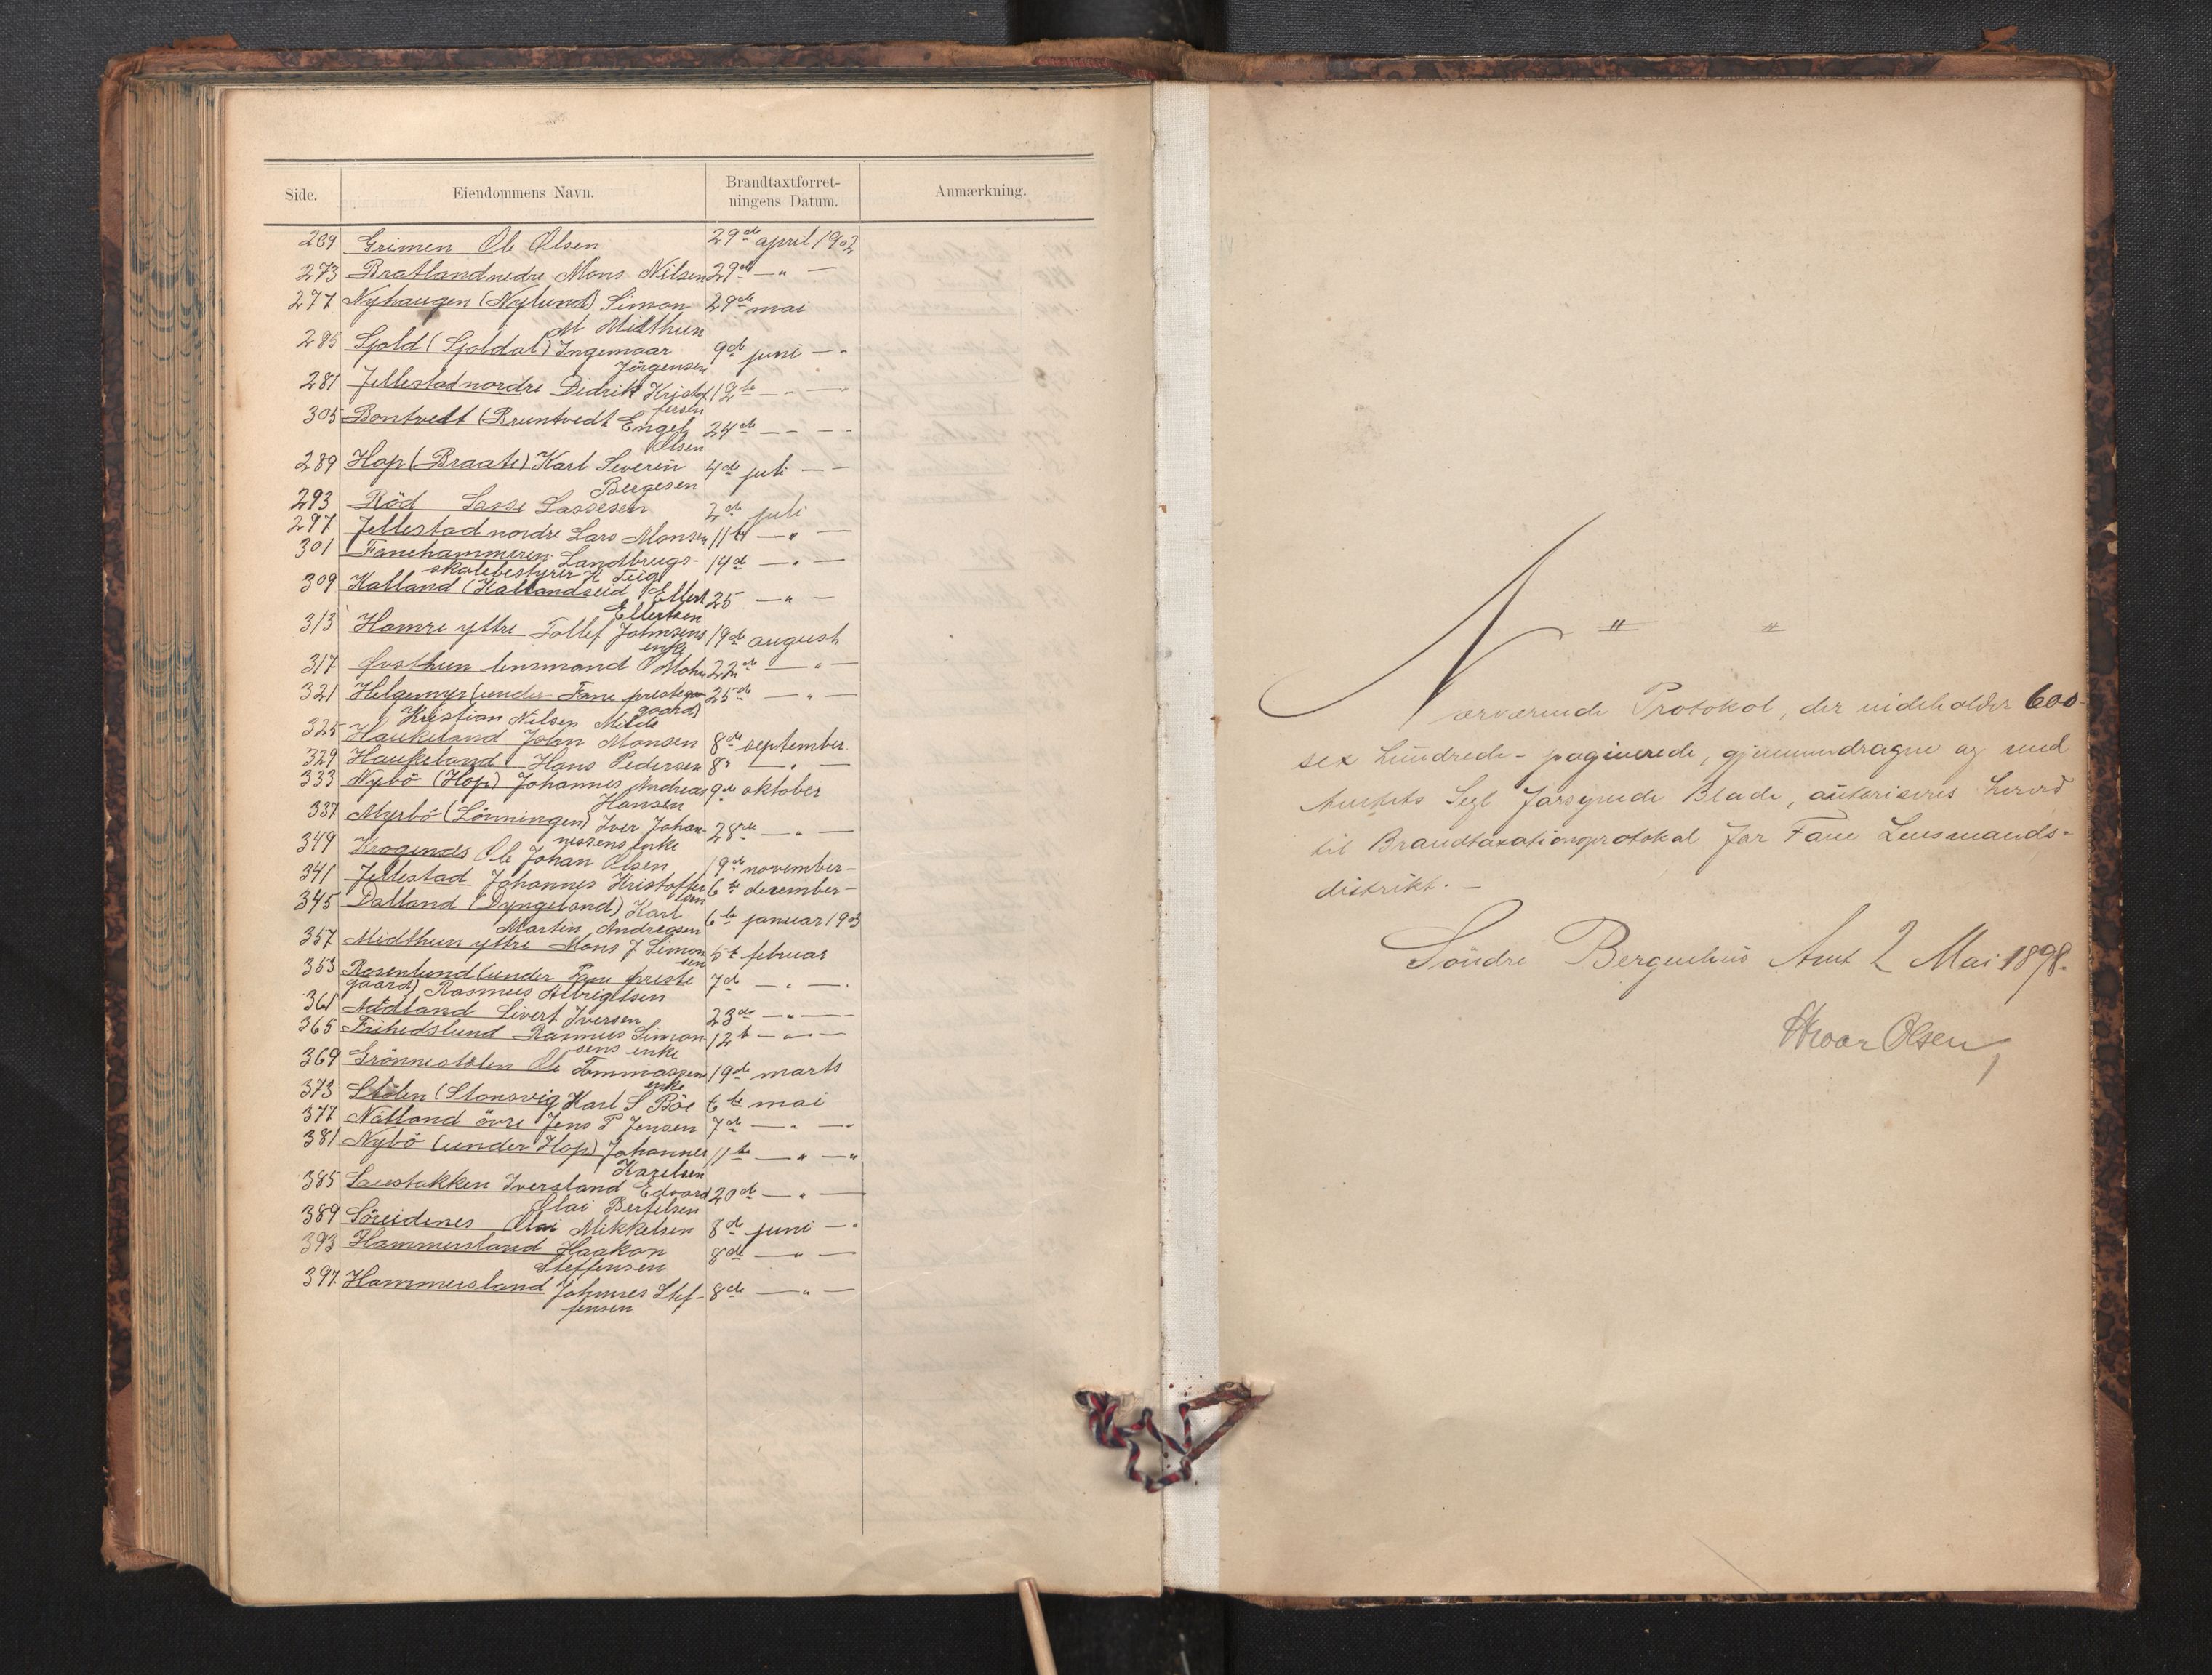 Side. Eiendommens Navn. Brandtaxtforret- Anmærkning.
ningens Datum.
269 Grimen Ole Olsen 29de april 1902
273 Bratland nedre Mons Nilsen 29de — " —
277 Nyhaugen (Nylund) Simon 29de mai
M Midthun
285 Sjold (Sjoldal) Ingemaar 9de juni — "
Jörgensen
281 Jellestad nordre Didrik Kristof 12te — " —
fersen
305 Bontvedt (Bruntvedt Engel 24de — — — -
Olsen
289 Hop (Braate) Karl Severin 4de juli — —
Bergesen
293 Röd Lasse Lassesen 2de juli
297 Jellestad nordre Lars Monsen 11te — " —
301 Fanehammeren Landbrugs- 14de — " —
skolebestyrer K Teig
309 Kalland (Kallandseid) Ellert 25 — " —
Ellertsen
313 Hamre yttre Tollef Johnsens 19de august
enke
317 Østhun lensmand Mohn 22de — " —
321 Helgemyr (under Fane preste 25de — " —
gaard)
Kristian Nilsen Milde
325 Haukeland John Monsen 8de september
329 Haukeland Hans Pedersen 8de — " —
333 Nybö (Hop) Johannes Andreas 9de oktober
Hansen
337 Myrbö (Lönningen) Iver Johan- 28de — " —
nesens enke
349 Krogenes Ole Johan Olsen 19de november —
341 Jellestad Johannes Kristoffer 6te december —
sen
345 Dalland (Dyngeland) Karl 6te januar 1903
Martin Andreasen
357 Midthun yttre Mons J Simon 5te februar
sen
353 Rosenlund (under Fane preste 7de — " — .
gaard) Rasmus Albrigtsen
361 Nödland Sivert Iversen 23de — " —
365 Frihedslund Rasmus Simon 12te — " —
sens enke
369 Grönnestölen Ole Tommassens 19de marts
enke
373 Stölen (Storsvig Karl S Böe 6te mai
377 Natland övre Jens P Jensen 7de — " — "
381 Nybö (under Hop) Johannes 11te — " — "
Karelsen
385 Saustakken Iversland Edvard 20de — " —
Olai Bertelsen
389 Söreidenes Olai Mikkelsen 8de juni — "
393 Hammersland Haakon 8de — " —
Steffensen
397 Hammersland Johannes Stef- 8de — " —
fensen
" "
Nærværende Protokol, der indeholder 600-
sex hundrede - paginerede, gjennemdragne og med
Amtets Segl forsynede Blade, autoriseres herved
til Brandtaxationsprotokol for Fane Lensmands-
distrikt. —
Söndre Bergenhus Amt 2 Mai 1898.
Hroar Olsen